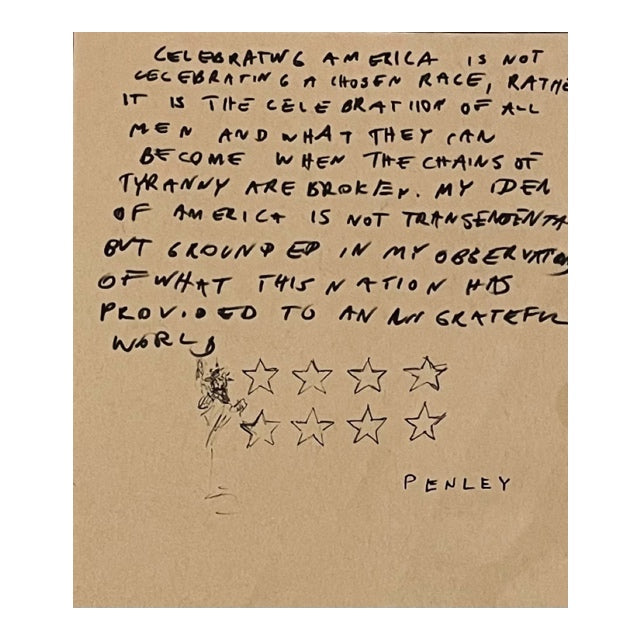 CELEBRATING AMERICA IS NOT
CELEBRATING A CHOSEN RACE, RATHE
IT IS THE CELEBRATIION OF ALL
MEN AND WHAT THEY CAN
BECOME WHEN THE CHAINS OF
TYRANNY ARE BROKEN. MY IDEA
OF AMERICA IS NOT TRANSENDENTA
BUT GROUNDED IN MY OBSERVATION
OF WHAT THIS NATION HAS
PROVIDED TO AN UNGRATEFUL
WORLD
PENLEY